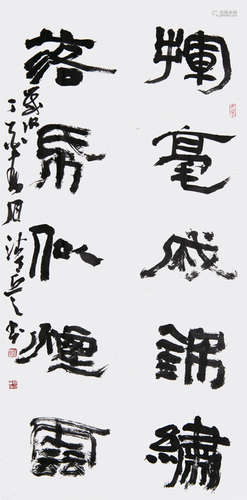 揮毫成錦繡
落帋似煙雲
歲次
丁亥年